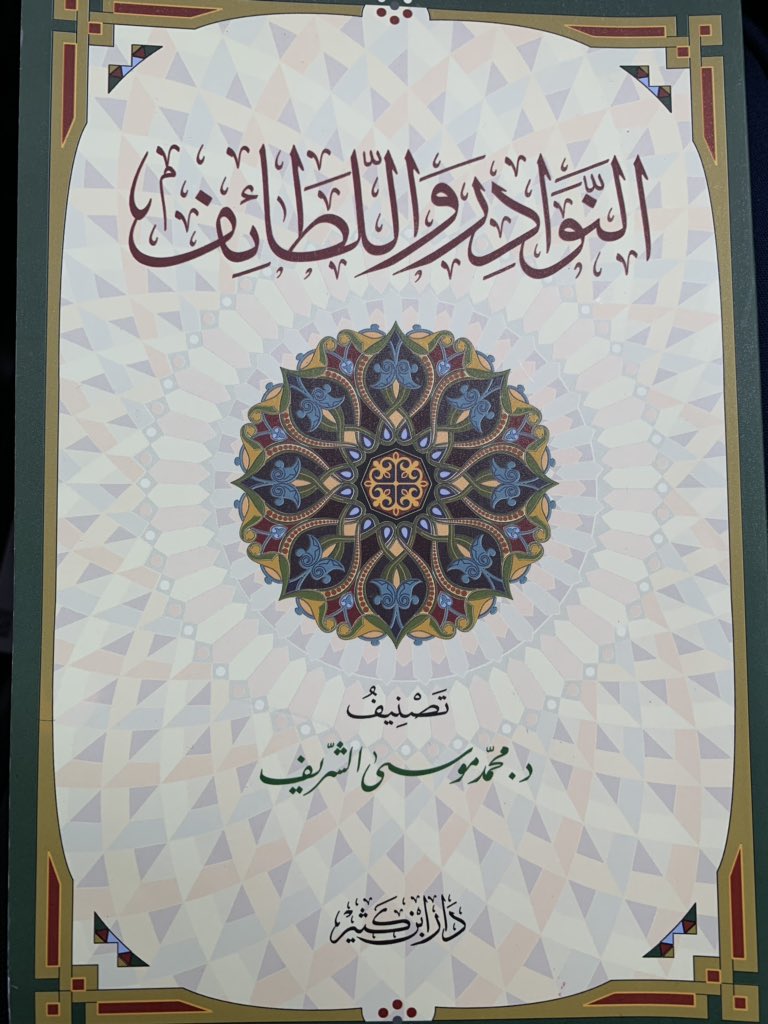 النَّوَادِر وَاللَّطَائِف
تَصْنِيفُ
د. محمّد موسى الشّريف
دَار ابْن كَثِيْر